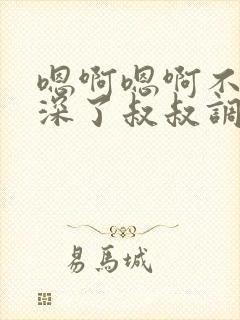 嗯啊嗯啊不
深了叔叔調
易馬城